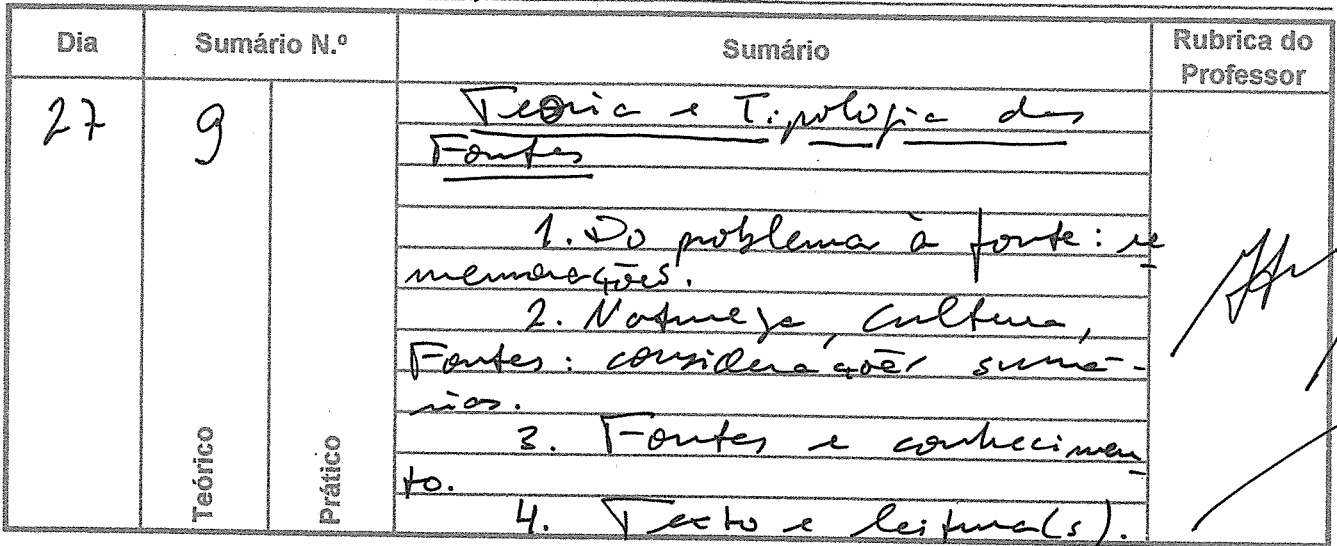 Dia Sumário N.º Sumário Rubrica do
Professor
27 9 Teoria e Tipologia das
Fontes
1. Do problema à fonte: re
memorações.
2. Natureza, Cultura,
Fontes: considerações sumá-
rias.
3. Fontes e conhecimen
to.
4. Texto e leitura(s).
Teórico
Prático